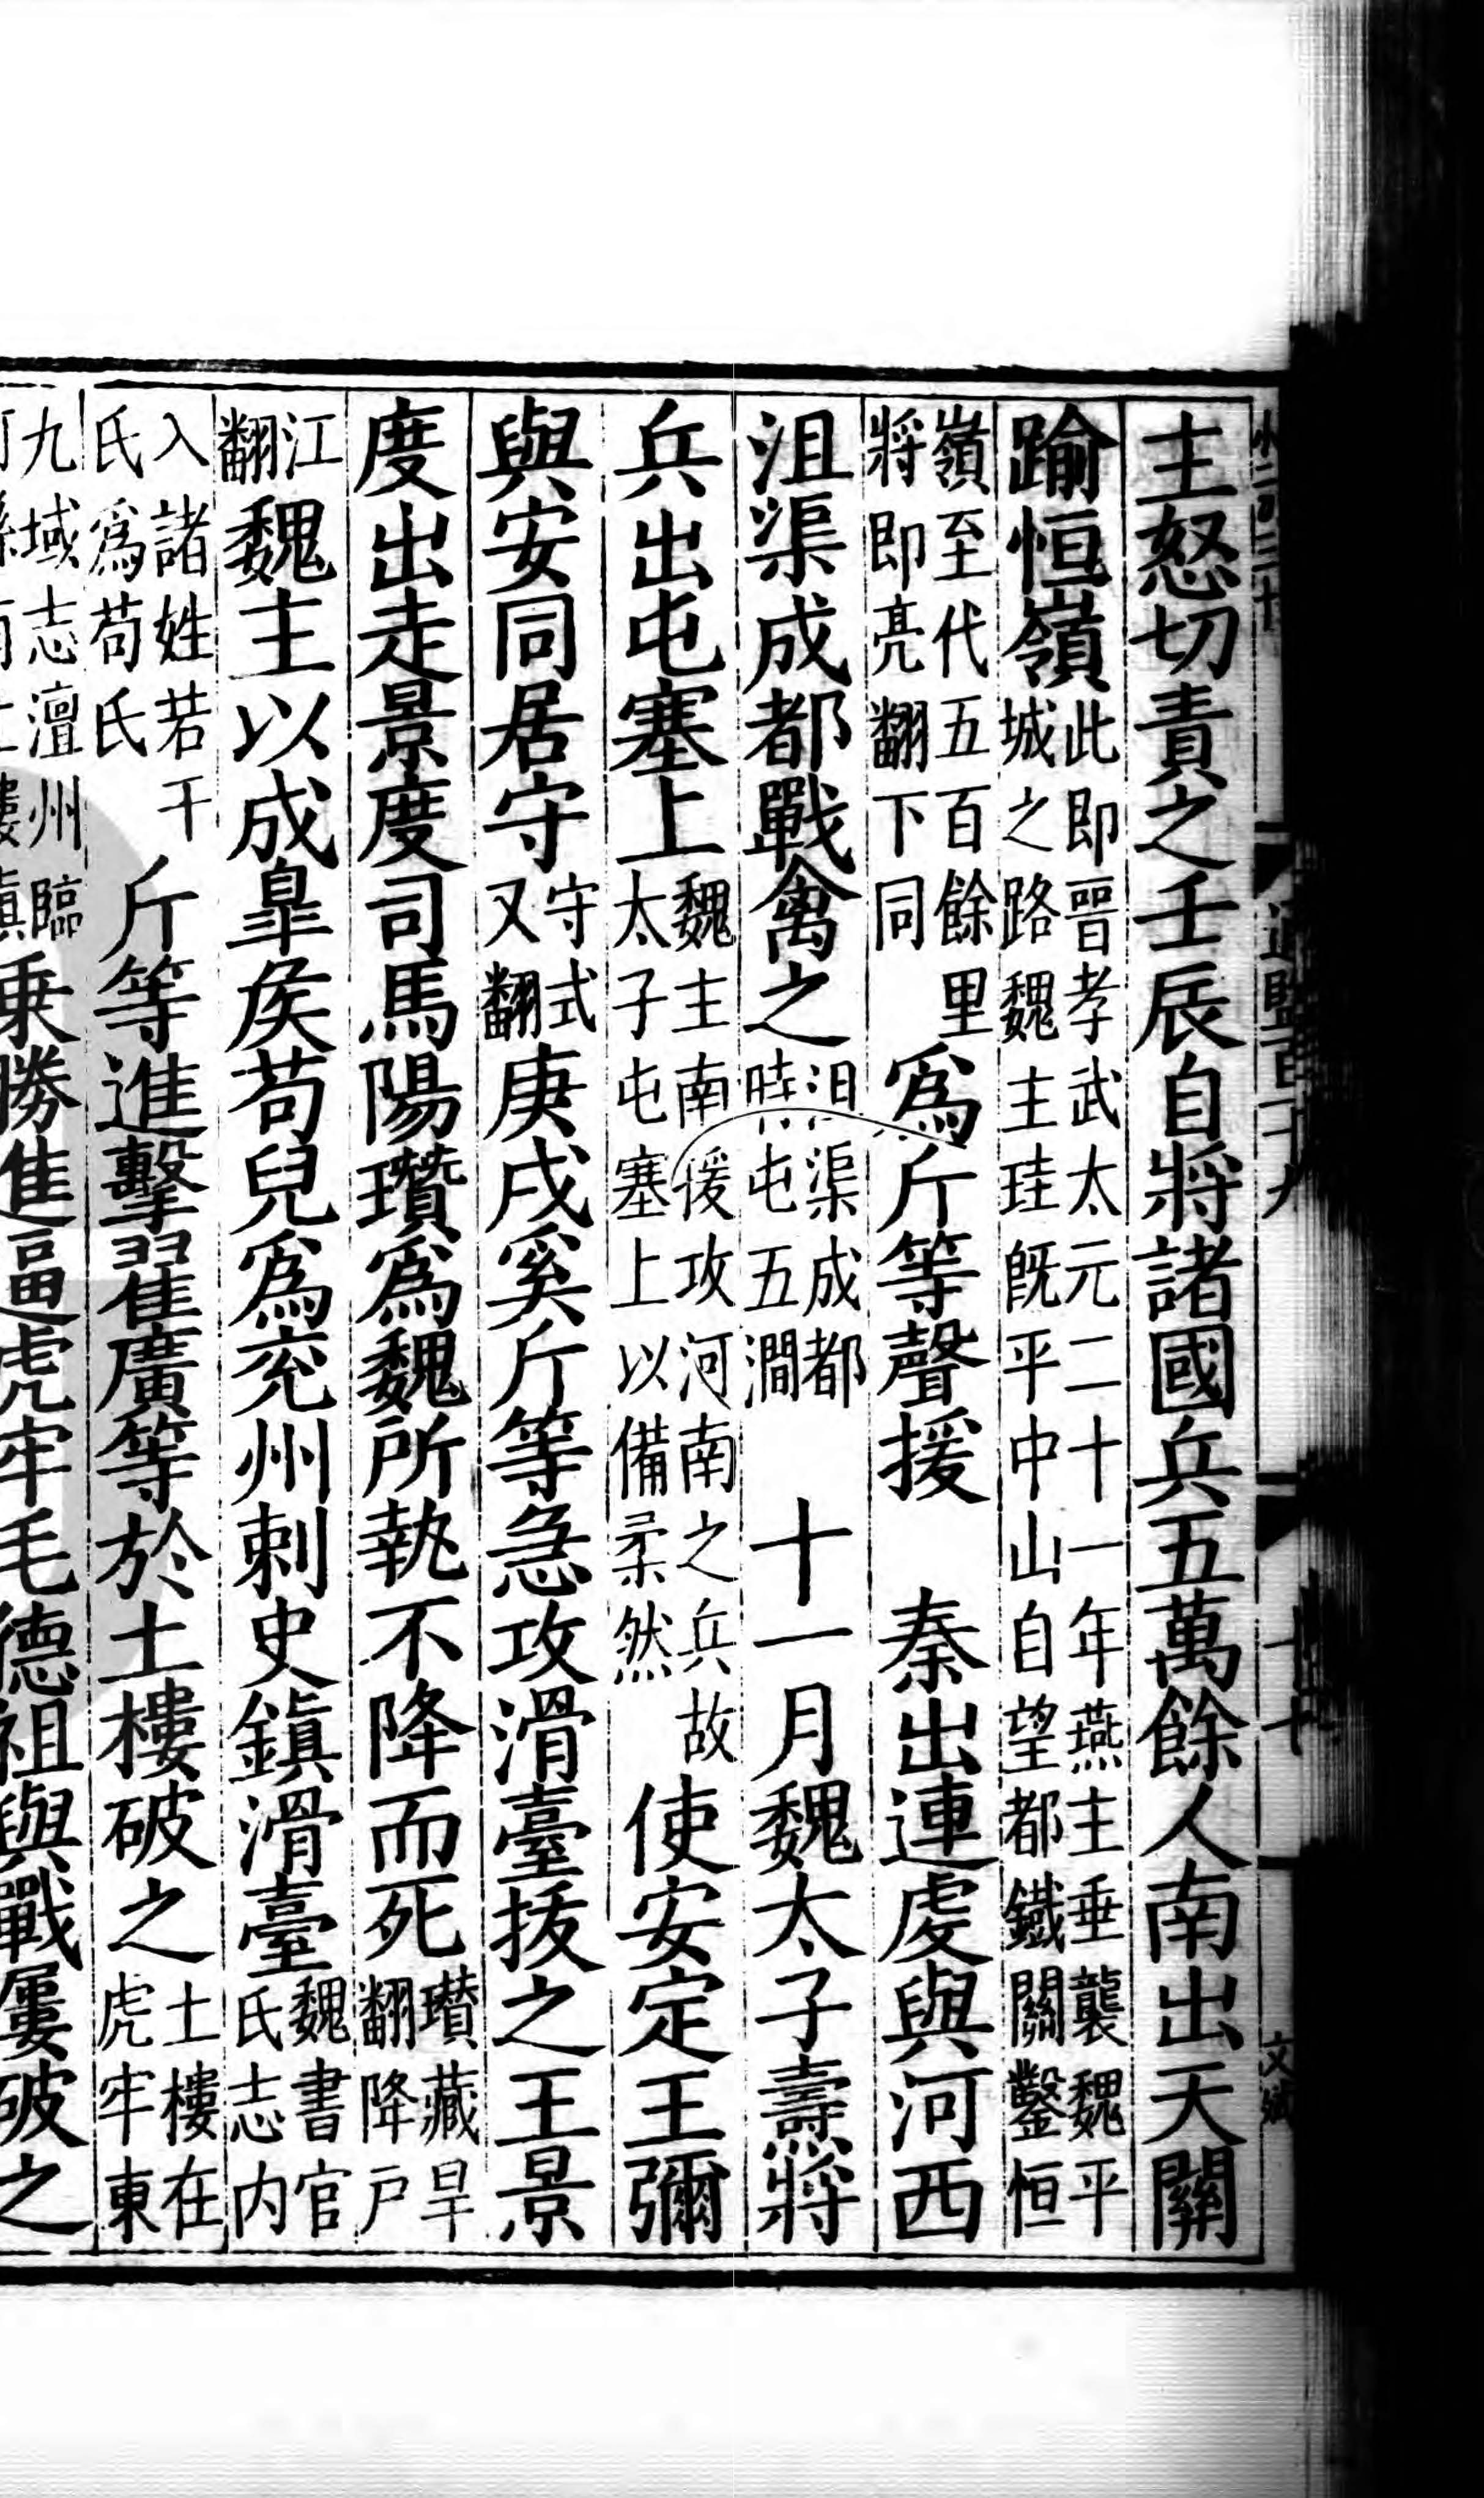 主怒切責之壬辰自將諸國兵五萬餘人南出天關
踰恒嶺此即晉孝武太元二十一年燕主垂襲魏平城之路魏主珪既平中山自望都鐵關鑿恒
嶺至代五百餘里將即亮翻下同爲斤等聲援　秦出連虔與河西
沮渠成都戰禽之沮渠成都時屯五澗　十一月魏太子燾將
兵出屯塞上魏主南援攻河南之兵故太子屯塞上以備柔然使安定王彌
與安同居守守式又翻庚戌奚斤等急攻滑臺拔之王景
度出走景度司馬陽瓚爲魏所執不降而死瓚藏旱翻降戶
江翻魏主以成皐侯苟兒爲兖州刺史鎮滑臺魏書官氏志内
入諸姓若干氏爲苟氏斤等進擊翟廣等於土樓破之土樓在虎牢東
九域志澶州臨乗勝進逼虎牢毛德祖與戰屢破之